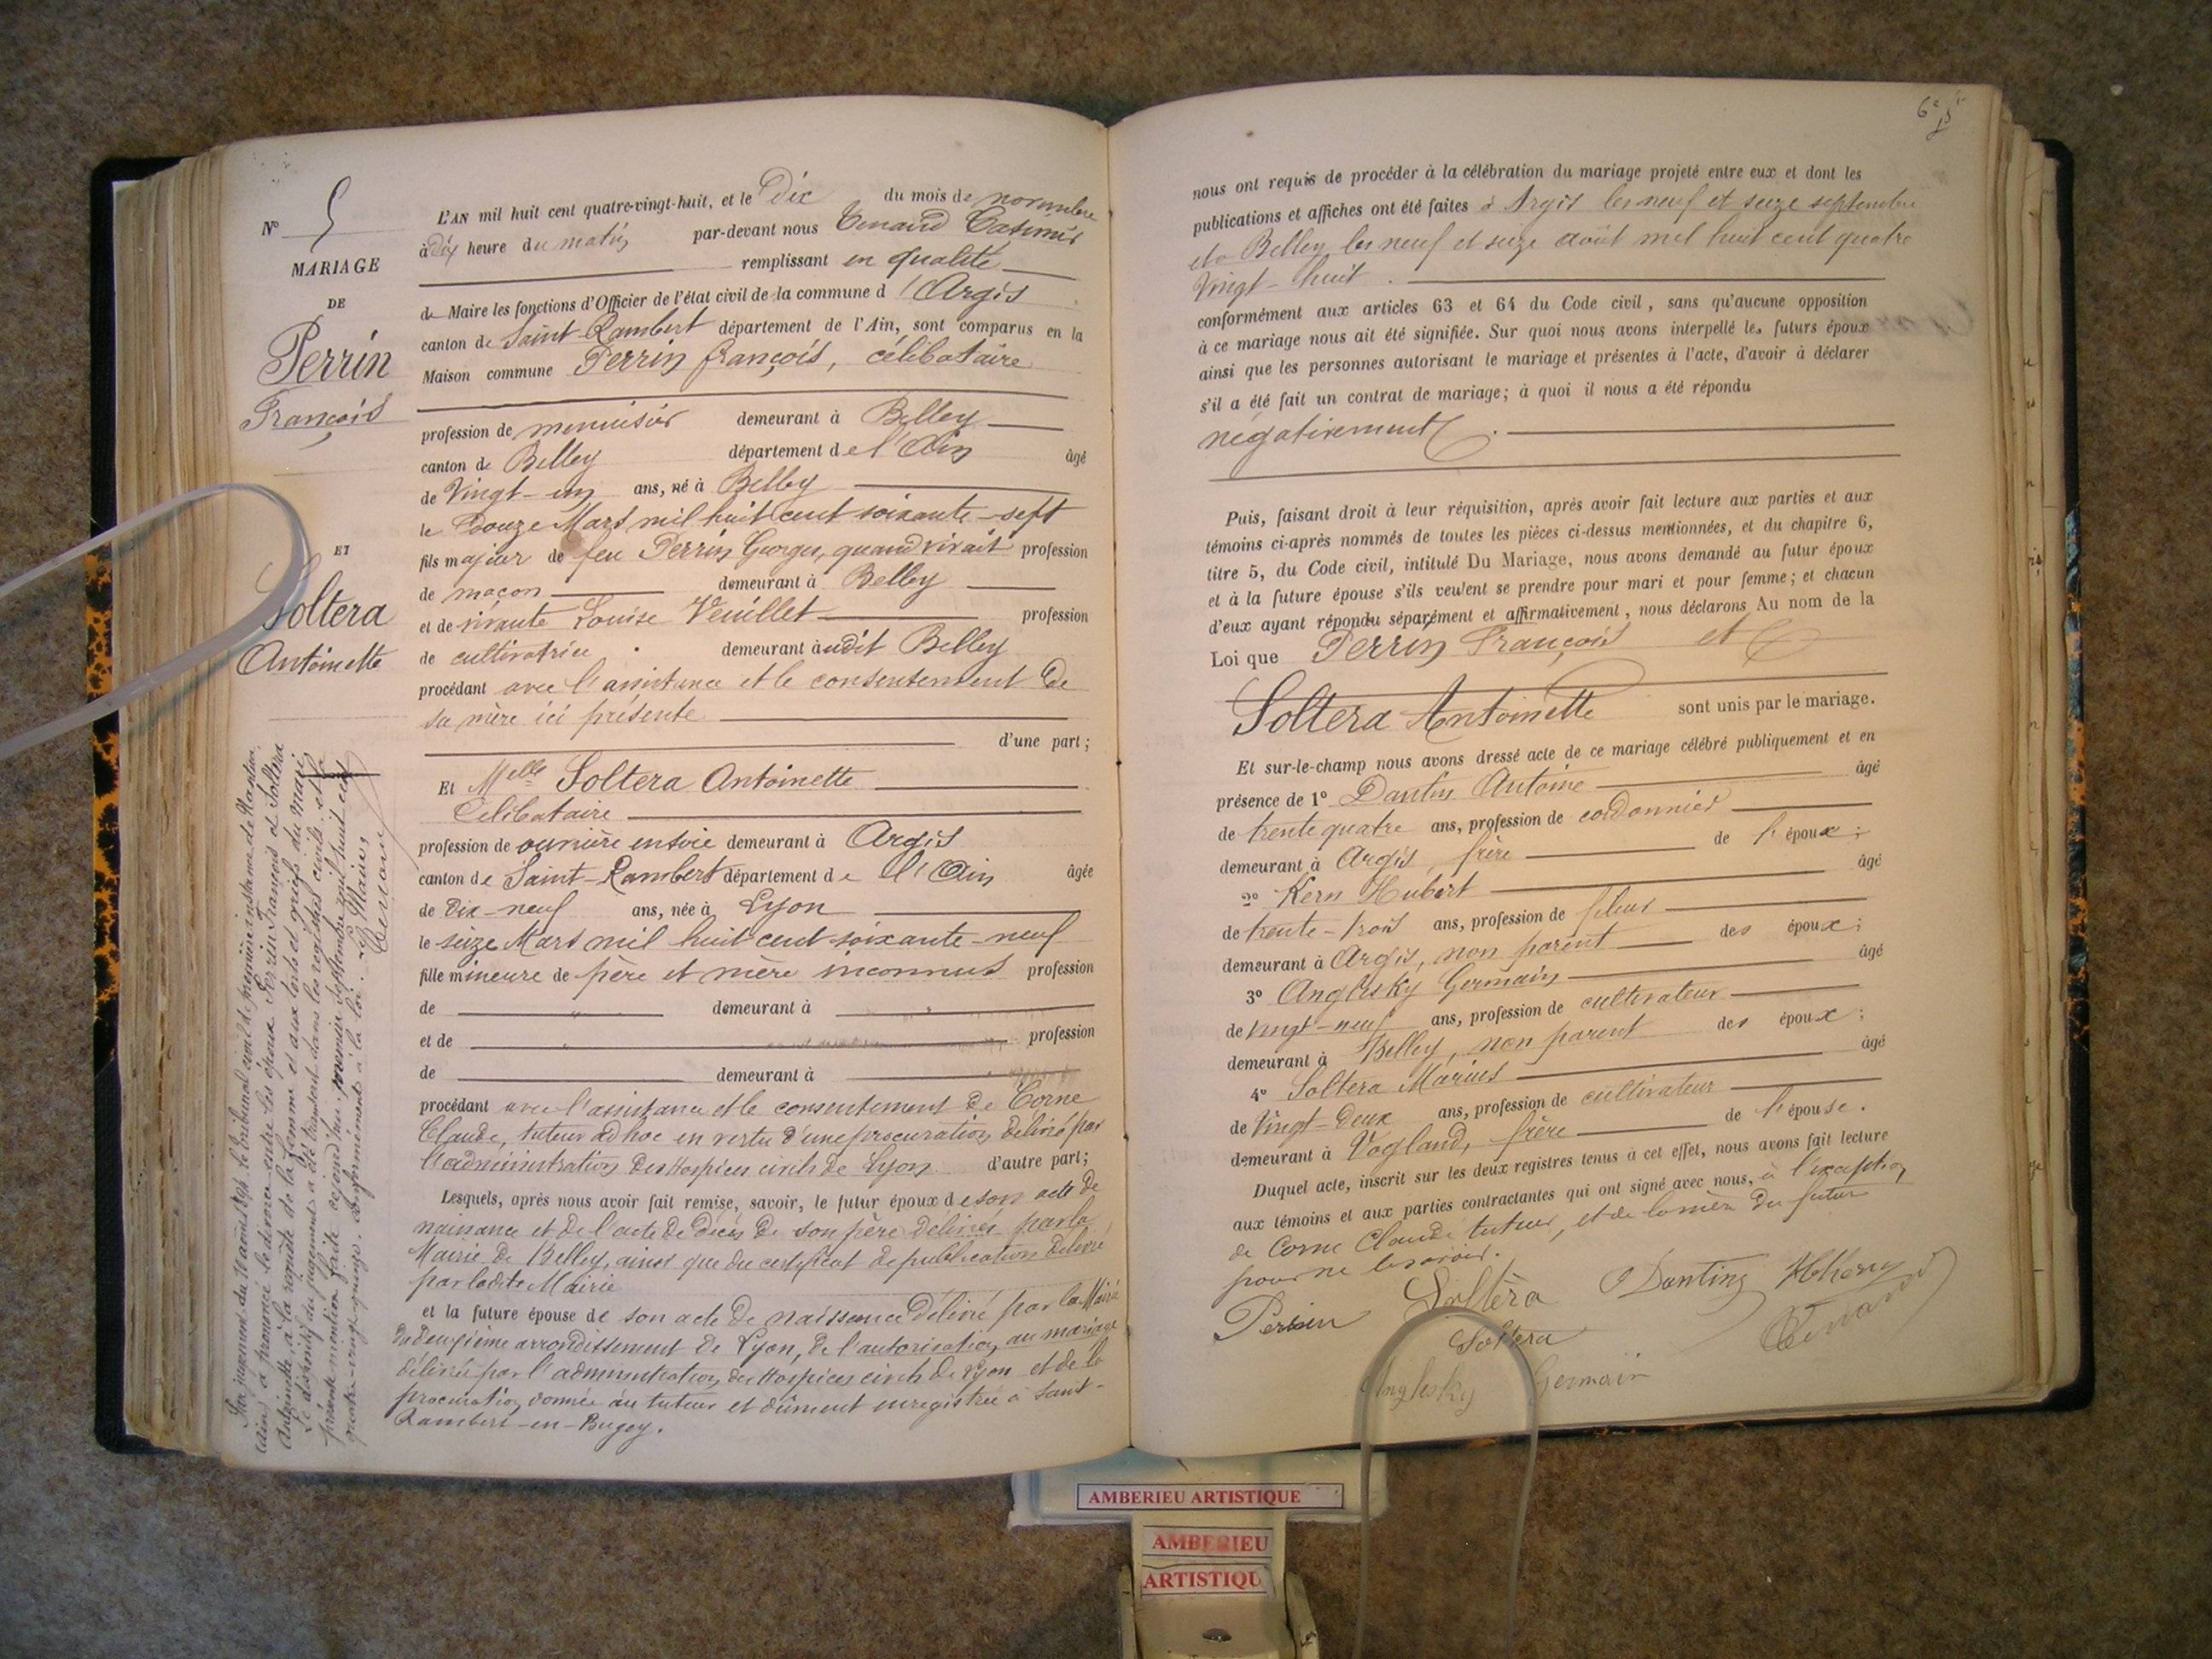 N° 5
MARIAGE
DE
Perrin
François
ET
Soltera
Antoinette
Par jugement du 10 août 1895 le tribunal civil de première instance de Nantua
(Ain) a prononcé le divorce entre les époux Perrin François et Soltera
Antoinette à la requête de la femme et aux torts et griefs du mari.
Le dispositif du jugement a été transcrit dans les registres civils et la
présente mention faite aujourd'hui premier septembre mil huit cent
quatre-vingt-quinze, conformément à la loi. Le Maire,
Tenand
L'AN mil huit cent quatre-vingt-huit, et le Dix du mois de novembre
à dix heure du matin par-devant nous Tenand Casimir
remplissant en qualité
de Maire les fonctions d'Officier de l'état civil de la commune d'Argis
canton de Saint-Rambert département de l'Ain, sont comparus en la
Maison commune Perrin françois, célibataire
profession de menuisier demeurant à Belley
canton de Belley département de l'Ain âgé
de Vingt-un ans, né à Belley
le Douze Mars mil huit cent soixante-sept
fils majeur de feu Perrin Georges, quand vivait profession
de maçon demeurant à Belley
et de vivante Louise Veuillet profession
de cultivatrice demeurant audit Belley
procédant avec l'assistance et le consentement de
sa mère ici présente
d'une part;
Et Melle Soltera Antoinette
Célibataire
profession de ouvrière en soie demeurant à Argis
canton de Saint-Rambert département de l'Ain âgée
de Dix-neuf ans, née à Lyon
le seize Mars mil huit cent soixante-neuf
fille mineure de père et mère inconnus profession
de demeurant à
et de profession
de demeurant à
procédant avec l'assistance et le consentement de Corne
Claude, tuteur ad hoc en vertu d'une procuration délivré par
l'administration des Hospices civils de Lyon d'autre part;
Lesquels, après nous avoir fait remise, savoir, le futur époux de son acte de
naissance et de l'acte de décès de son père délivrés par la
Mairie de Belley, ainsi que du certificat de publication délivré
par ladite Mairie
et la future épouse de son acte de naissance délivré par la Mairie
du deuxième arrondissement de Lyon, de l'autorisation au mariage
délivrée par l'administration des Hospices civils de Lyon et de la
procuration donnée au tuteur et dûment enregistrée à Saint-
Rambert-en-Bugey.
nous ont requis de procéder à la célébration du mariage projeté entre eux et dont les
publications et affiches ont été faites à Argis les neuf et seize septembre
et à Belley les neuf et seize août mil huit cent quatre
Vingt-huit.
conformément aux articles 63 et 64 du Code civil, sans qu'aucune opposition
à ce mariage nous ait été signifiée. Sur quoi nous avons interpellé les futurs époux
ainsi que les personnes autorisant le mariage et présentes à l'acte, d'avoir à déclarer
s'il a été fait un contrat de mariage; à quoi il nous a été répondu
négativement.
Puis, faisant droit à leur réquisition, après avoir fait lecture aux parties et aux
témoins ci-après nommés de toutes les pièces ci-dessus mentionnées, et du chapitre 6,
titre 5, du Code civil, intitulé Du Mariage, nous avons demandé au futur époux
et à la future épouse s'ils veulent se prendre pour mari et pour femme; et chacun
d'eux ayant répondu séparément et affirmativement, nous déclarons Au nom de la
Loi que Perrin François et
Soltera Antoinette sont unis par le mariage.
Et sur-le-champ nous avons dressé acte de ce mariage célébré publiquement et en
présence de 1° Dantin Antoine âgé
de trente quatre ans, profession de cordonnier
demeurant à Argis, frère de l'époux;
2° Kern Hubert âgé
de trente-trois ans, profession de fileur
demeurant à Argis, non parent des époux;
3° Anglesky Germain âgé
de vingt-neuf ans, profession de cultivateur
demeurant à Belley, non parent des époux;
4° Soltera Marius âgé
de Vingt-Deux ans, profession de cultivateur
demeurant à Vogland, frère de l'épouse.
Duquel acte, inscrit sur les deux registres tenus à cet effet, nous avons fait lecture
aux témoins et aux parties contractantes qui ont signé avec nous, à l'exception
de Corne Claude tuteur, et de la mère du futur
pour ne le savoir.
Perrin Soltéra Dantin HKern
Soltera Tenand
Anglesky Germain
AMBERIEU ARTISTIQUE
AMBERIEU
ARTISTIQU